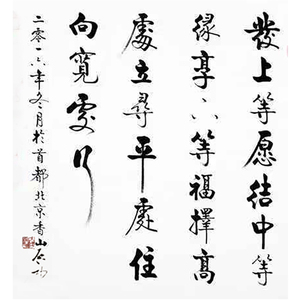 發上等愿结中等
缘享下等福擇高
處立尋平處住
向寬處行
二零一六年冬月於首都北京香山